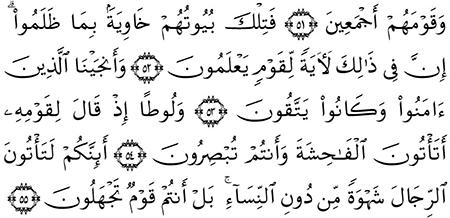 وَقَوْمَهُمْ أَجْمَعِينَ ۝٥١ فَتِلْكَ بُيُوتُهُمْ خَاوِيَةًۢ بِمَا ظَلَمُوٓا۟ ۗ
إِنَّ فِى ذَٰلِكَ لَـَٔايَةً لِّقَوْمٍ يَعْلَمُونَ ۝٥٢ وَأَنجَيْنَا ٱلَّذِينَ
ءَامَنُوا۟ وَكَانُوا۟ يَتَّقُونَ ۝٥٣ وَلُوطًا إِذْ قَالَ لِقَوْمِهِۦٓ
أَتَأْتُونَ ٱلْفَـٰحِشَةَ وَأَنتُمْ تُبْصِرُونَ ۝٥٤ أَئِنَّكُمْ لَتَأْتُونَ
ٱلرِّجَالَ شَهْوَةً مِّن دُونِ ٱلنِّسَآءِ ۚ بَلْ أَنتُمْ قَوْمٌ تَجْهَلُونَ ۝٥٥